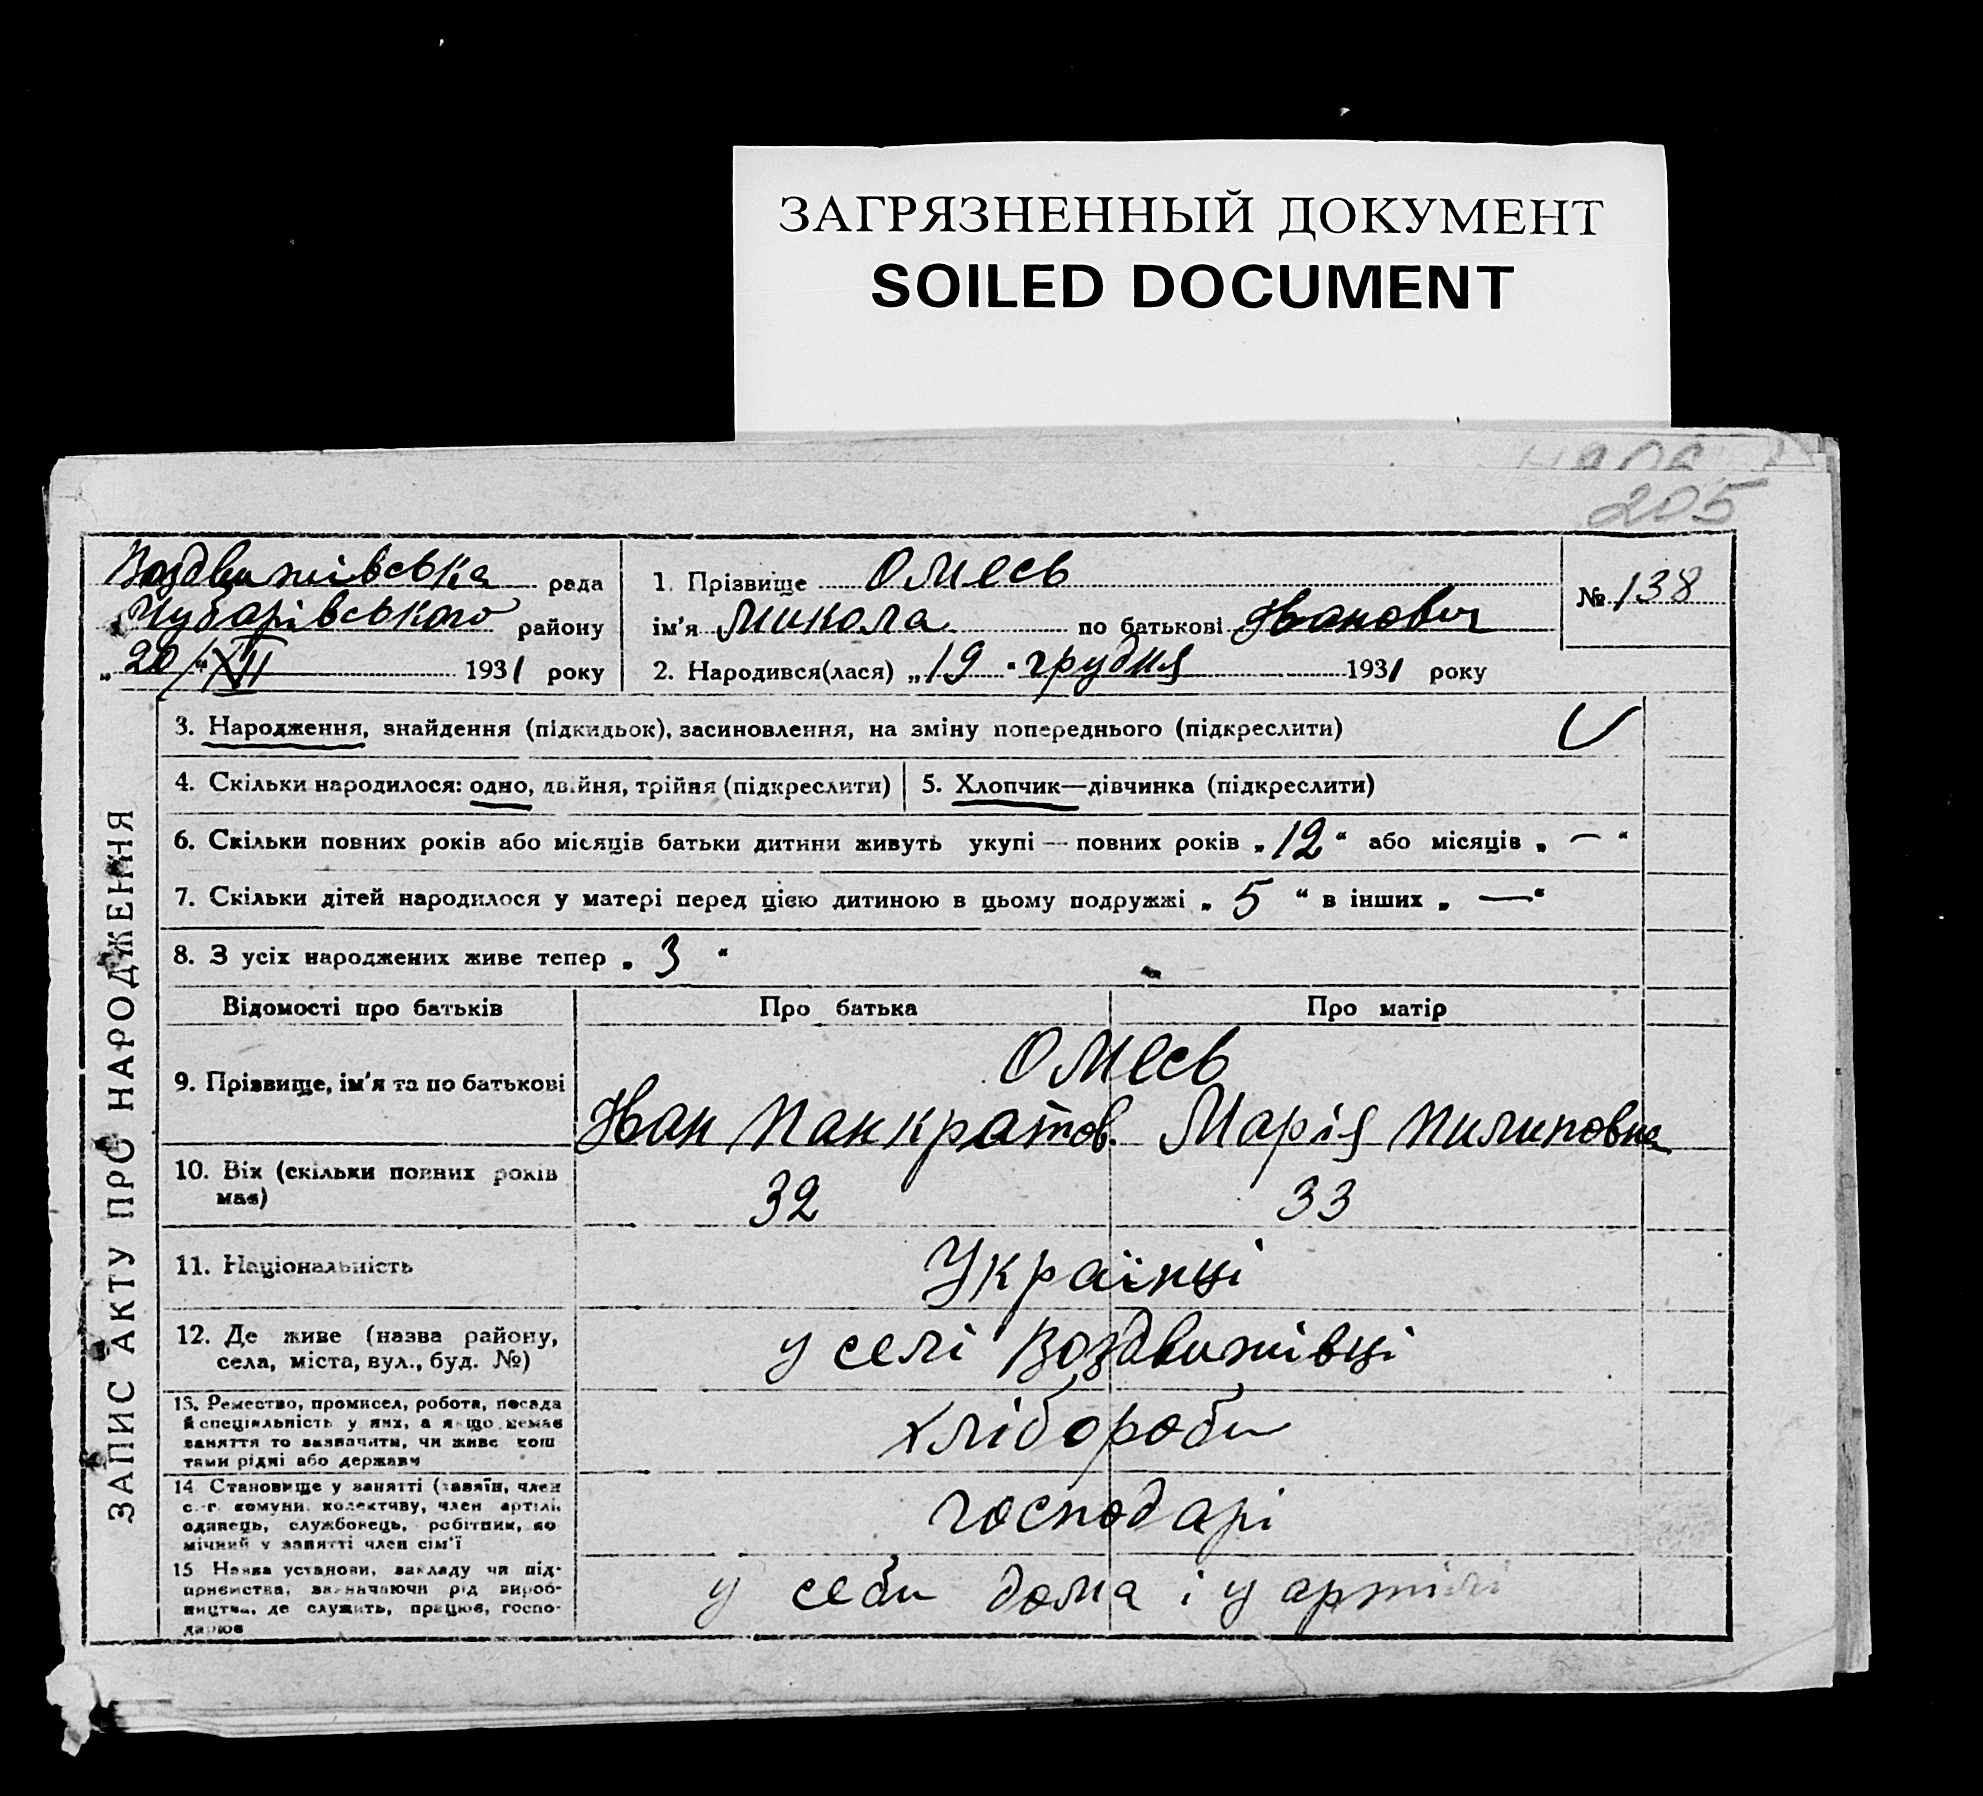 ЗАГРЯЗНЕННЫЙ ДОКУМЕНТ
SOILED DOCUMENT
205
Воздвижівська рада
Чубарівського району
„20/"XII 1931 року
1. Прізвище Омесь
ім'я Микола по батькові Іванович
2. Народився(лася) „19" грудня 1931 року
№ 138
ЗАПИС АКТУ ПРО НАРОДЖЕННЯ
3. Народження, знайдення (підкидьок), засиновлення, на зміну попереднього (підкреслити)
4. Скільки народилося: одно, двійня, трійня (підкреслити) 5. Хлопчик—дівчинка (підкреслити)
6. Скільки повних років або місяців батьки дитини живуть укупі — повних років „12" або місяців „—"
7. Скільки дітей народилося у матері перед цією дитиною в цьому подружжі „5" в інших „—"
8. З усіх народжених живе тепер „3"
Відомості про батьків Про батька Про матір
9. Прізвище, ім'я та по батькові Омесь
Іван Панкратов. Марія Пилиповна
10. Вік (скільки повних років
має) 32 33
11. Національність Українці
12. Де живе (назва району,
села, міста, вул., буд. №) у селі Воздвижівці
13. Ремество, промисел, робота, посада
й спеціяльність у них, а якщо немає
заняття то зазначити, чи живе кош
тами рідні або держави хлібороби
14. Становище у занятті (хазяїн, член
с.-г. комуни, колективу, член артілі,
одинець, службовець, робітник, по
мічний у занятті член сім'ї господарі
15 Назва установи, закладу чи під-
приємства, зазначаючи рід вироб-
ництва, де служить, працює, госпо-
дарює у себи дома і у артілі